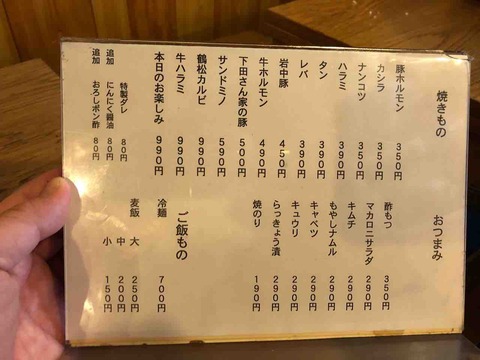 焼きもの
豚ホルモン 350円
カシラ 350円
ナンコツ 350円
ハラミ 390円
タン 390円
レバ 390円
岩中豚 450円
牛ホルモン 490円
下田さん家の豚 500円
サンドミノ 590円
鶴松カルビ 990円
牛ハラミ 990円
本日のお楽しみ 990円
特製ダレ 80円
追加 にんにく醤油 80円
追加 おろしポン酢 80円
おつまみ
酢もつ 350円
マカロニサラダ 290円
キムチ 290円
もやしナムル 290円
キャベツ 290円
キュウリ 290円
らっきょう漬 290円
焼のり 190円
ご飯もの
冷麺 700円
麦飯 大 250円
中 200円
小 150円